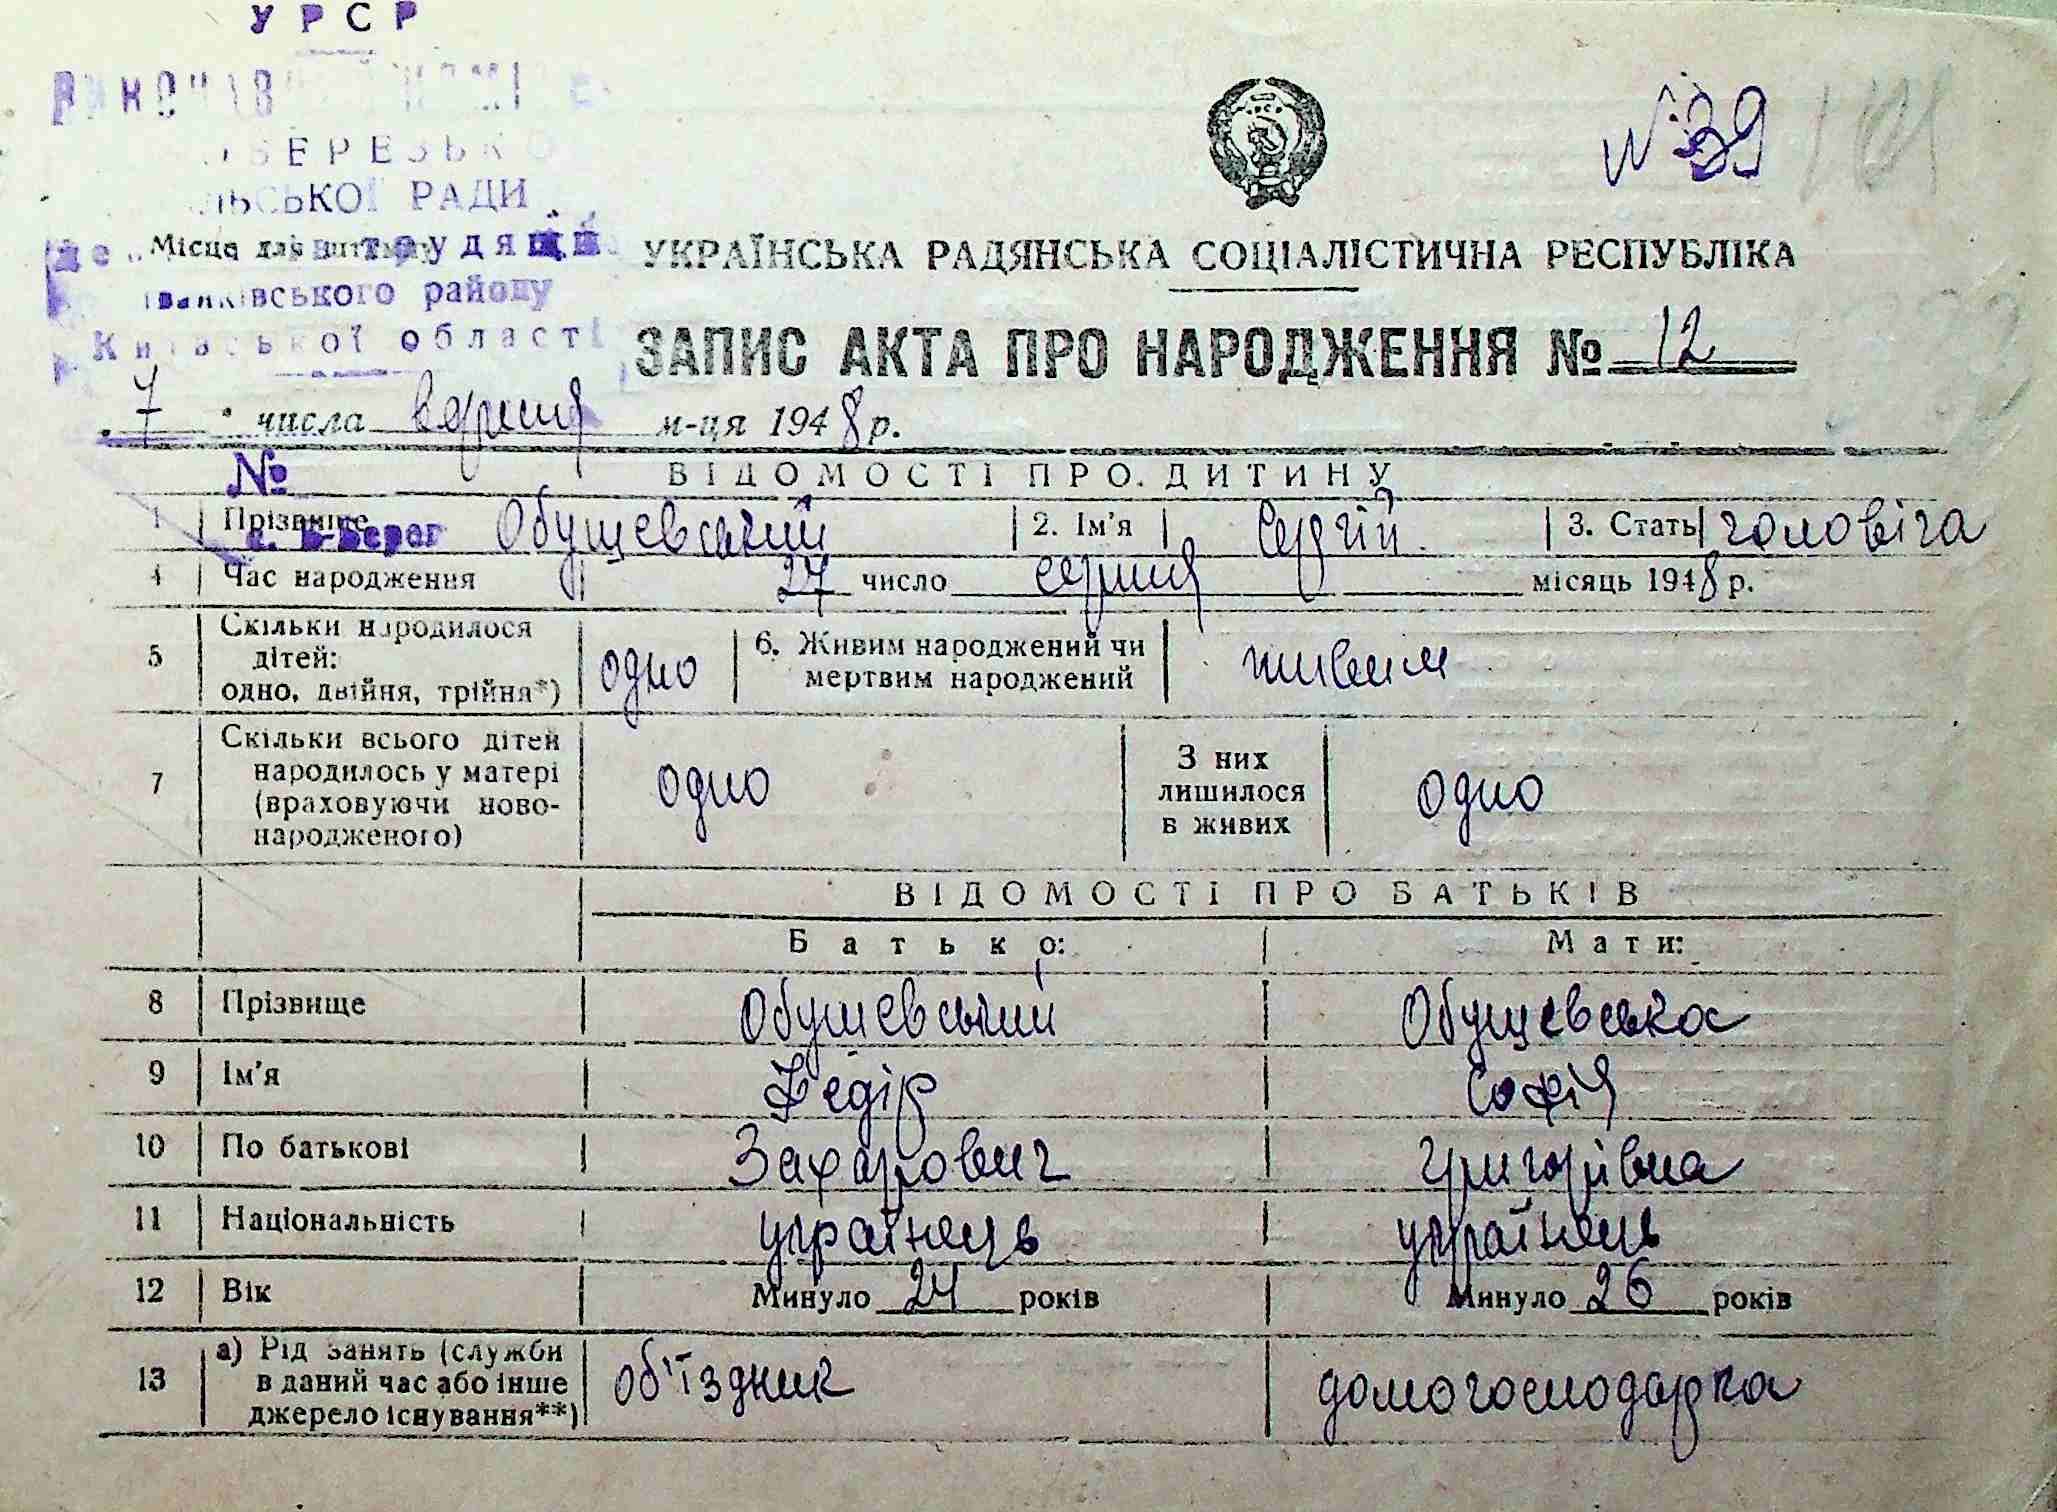 УРСР
БЕРЕЗЬКО
ЛЬСЬКОЇ РАДИ
Місце для штампу трудящи
Іванківського району
Київської області
№ 39
УРСР
УКРАЇНСЬКА РАДЯНСЬКА СОЦІАЛІСТИЧНА РЕСПУБЛІКА
ЗАПИС АКТА ПРО НАРОДЖЕННЯ № 12
7 числа версня м-ця 1948 р.
№
ВІДОМОСТІ ПРО ДИТИНУ
1 Прізвище Обущевський 2. Ім'я Сергій 3. Стать чоловіча
с. В-Берег
4 Час народження 27 число серпня місяць 1948 р.
5 Скільки народилося дітей: одно, двійня, трійня*) одно 6. Живим народжений чи мертвим народжений живим
7 Скільки всього дітей народилось у матері (враховуючи ново-народженого) одно З них лишилося в живих одно
ВІДОМОСТІ ПРО БАТЬКІВ
Батько: Мати:
8 Прізвище Обущевський Обущевська
9 Ім'я Федір Софія
10 По батькові Захарович Григорівна
11 Національність українець українець
12 Вік Минуло 24 років Минуло 26 років
13 а) Рід занять (служби в даний час або інше джерело існування**) об'їздник домогосподарка